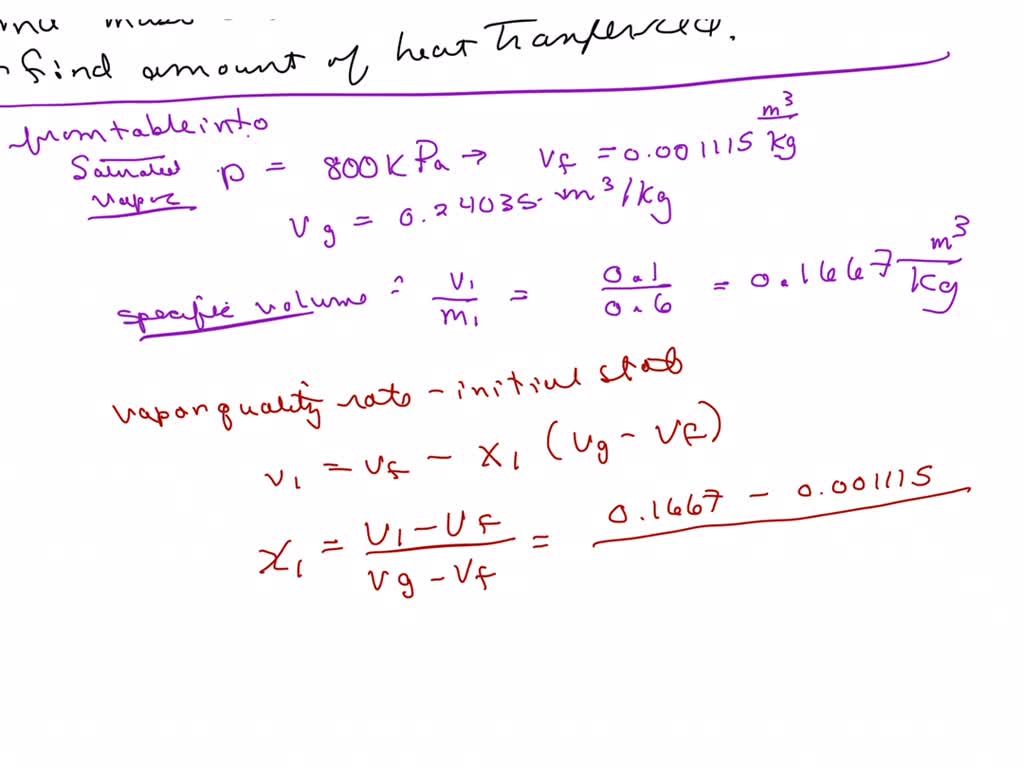 find amount of heat Tranferred.
from table into
Saturated P = 800 KPa → Vf = 0.001115 m³/kg
vapor
Vg = 0.24035 m³/kg
specific volume = V₁/m₁ = 0.1/0.6 = 0.1667 m³/kg
vapor quality rate - initial state
v₁ = vf - x₁ (vg - vf)
x₁ = (v₁ - vf)/(vg - vf) = 0.1667 - 0.001115